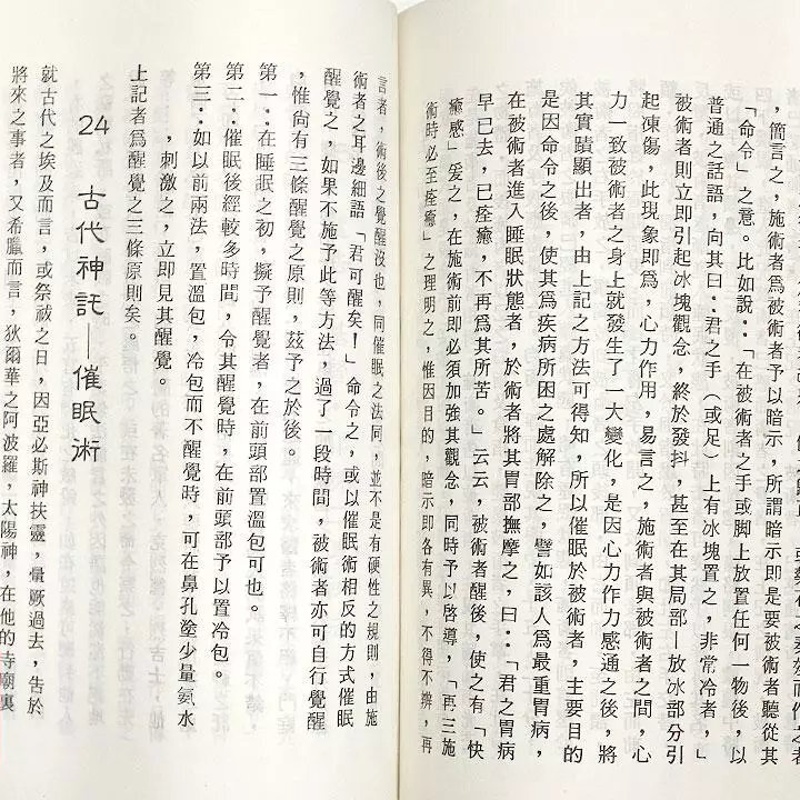 ，簡言之，施術者為被術者予以暗示，所謂暗示即是要被術者聽從其
「命令」之意。比如說：「在被術者之手或脚上放置任何一物後，以
普通之話語，向其曰：君之手（或足）上有冰塊置之，非常冷者，」
被術者則立即引起冰塊觀念，終於發抖，甚至在其局部—放冰部分引
起凍傷，此現象即爲，心力作用，易言之，施術者與被術者之間，心
力一致被術者之身上就發生了一大變化，是因心力作力感通之後，將
其實蹟顯出者，由上記之方法可得知，所以催眠於被術者，主要目的
是因命令之後，使其爲疾病所困之處解除之，譬如該人爲最重胃病，
在被術者進入睡眠狀態者，於術者將其胃部撫摩之，曰：「君之胃病
早已去，已痊癒，不再爲其所苦。」云云，被術者醒後，使之有「快
癒感」爰之，在施術前即必須加強其觀念，同時予以啓導，「再三施
術時必至痊癒」之理明之，惟因目的，暗示即各有異，不得不辨，再
言者，術後之覺醒沒也，同催眠之法同，並不是有硬性之規則，由施
術者之耳邊細語「君可醒矣！」命令之，或以催眠術相反的方式催眠
醒覺之，如果不施予此等方法，過了一段時間，被術者亦可自行覺醒
，惟尙有三條醒覺之原則，茲予之於後。
第一：在睡眠之初，擬予醒覺者，在前頭部置溫包可也。
第二：催眠後經較多時間，令其醒覺時，在前頭部予以置冷包。
第三：如以前兩法，置溫包，冷包而不醒覺時，可在鼻孔塗少量氨水
，刺激之，立即見其醒覺。
上記者爲醒覺之三條原則矣。
24 古代神託—催眠術
就古代之埃及而言，或祭祓之日，因亞必斯神扶靈，暈厥過去，告於
將來之事者，又希臘而言，狄爾華之阿波羅，太陽神，在他的寺廟裏